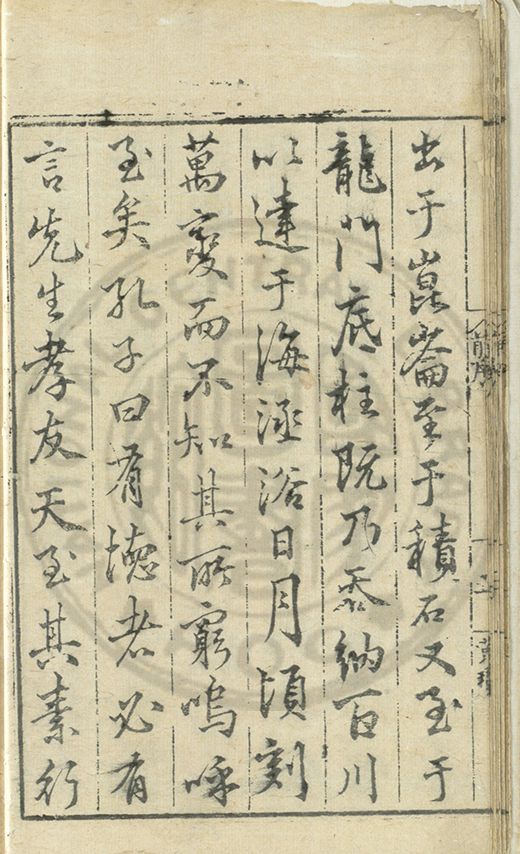 出于崑崙至于積石又至于
龍門底柱既乃吞納百川
以達于海涵浴日月頃刻
萬變而不知其所窮嗚呼
至矣孔子曰有德者必有
言先生孝友天至其素行